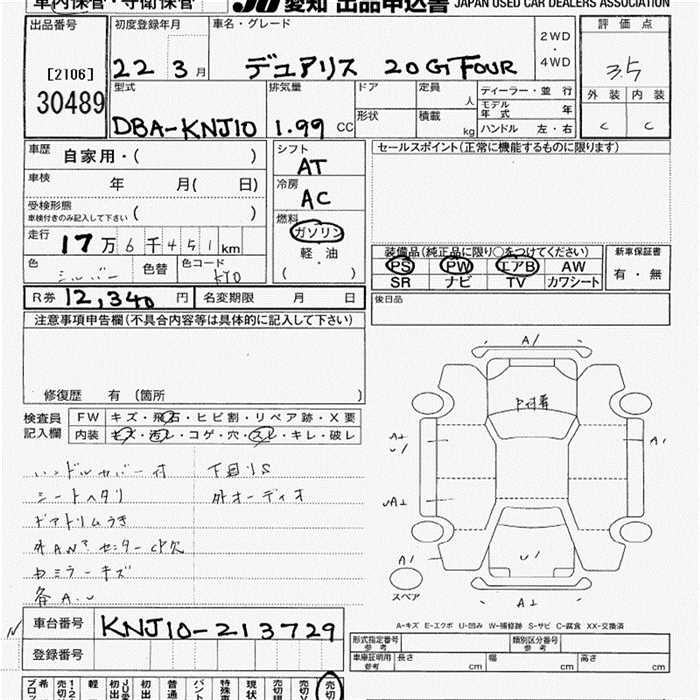 車内保管・守衛保管 JU 愛知 出品申込書 JAPAN USED CAR DEALERS ASSOCIATION
出品番号 初度登録年月 車名・グレード 評価点
[2106] 22 3月 デュアリス 20G FOUR 2WD ・ 4WD 3.5
30489 型式 排気量 ドア 定員 人 ディーラー・並行 外装 内装
DBA-KNJ10 1.99 CC 形状 積載 kg モデル年式 年 C C
ハンドル 左・右
車歴 自家用・( ) シフト AT セールスポイント(正常に機能するものに限ります)
車検 年 月( 日) 冷房 AC
受検形態 車検付きのみ記入して下さい ( ) 燃料 ガソリン
走行 17万6千451km 軽油
装備品(純正品に限り○をつけてください) 新車保証書
色 シルバー 色替 色コード KY0 ( ・ ) PS PW エアB AW 有・無
SR ナビ TV カワシート
R券 12,340円 名変期限 月 日 後日品
注意事項申告欄(不具合内容等は具体的に記入して下さい)
修復歴 有 (箇所 )
検査員記入欄 FW キズ・飛石・ヒビ割・リペア跡・X要
内装 キズ・汚レ・コゲ・穴・スレ・キレ・破レ
ハンドルカバー付 下回りS
シートヘタリ 外オーディオ
ドアトリムうき
外ANT センターCP欠
ミラーキズ
各A.U
A1
A1
U1
A1
A2
スペア
A-キズ E-エクボ U-凹み W-補修跡 S-サビ C-腐食 XX-交換済
車台番号 KNJ10-213729
登録番号
形式指定番号 参考 類別区分番号 参考
車庫証明用 参考 長さ cm 幅 cm 高さ cm
売切